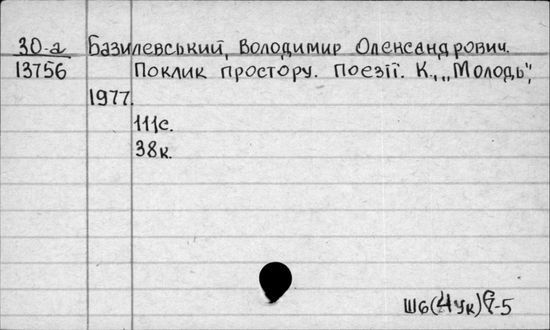 30-а Базилевський, Володимир Олександрович.
13756 Поклик простору. Поезії. К., „Молодь",
1977.
111с.
38к.
Ш6(4Ук)6-5